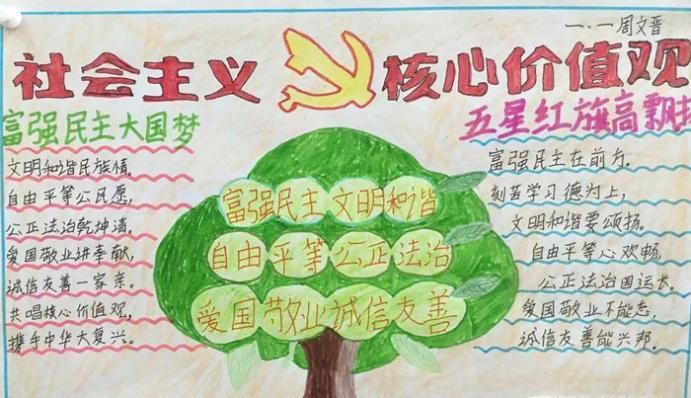 一.一周文晋
社会主义 核心价值观
富强民主大国梦
文明和谐民族情。
自由平等公民愿,
公正法治乾坤清。
爱国敬业讲奉献,
诚信友善一家亲。
共唱核心价值观,
携手中华大复兴。
富强民主文明和谐
自由平等公正法治
爱国敬业诚信友善
五星红旗高飘扬
富强民主在前方。
刻苦学习德为上,
文明和谐要颂扬。
自由平等心欢畅,
公正法治国运长。
爱国敬业不能忘,
诚信友善能兴邦。